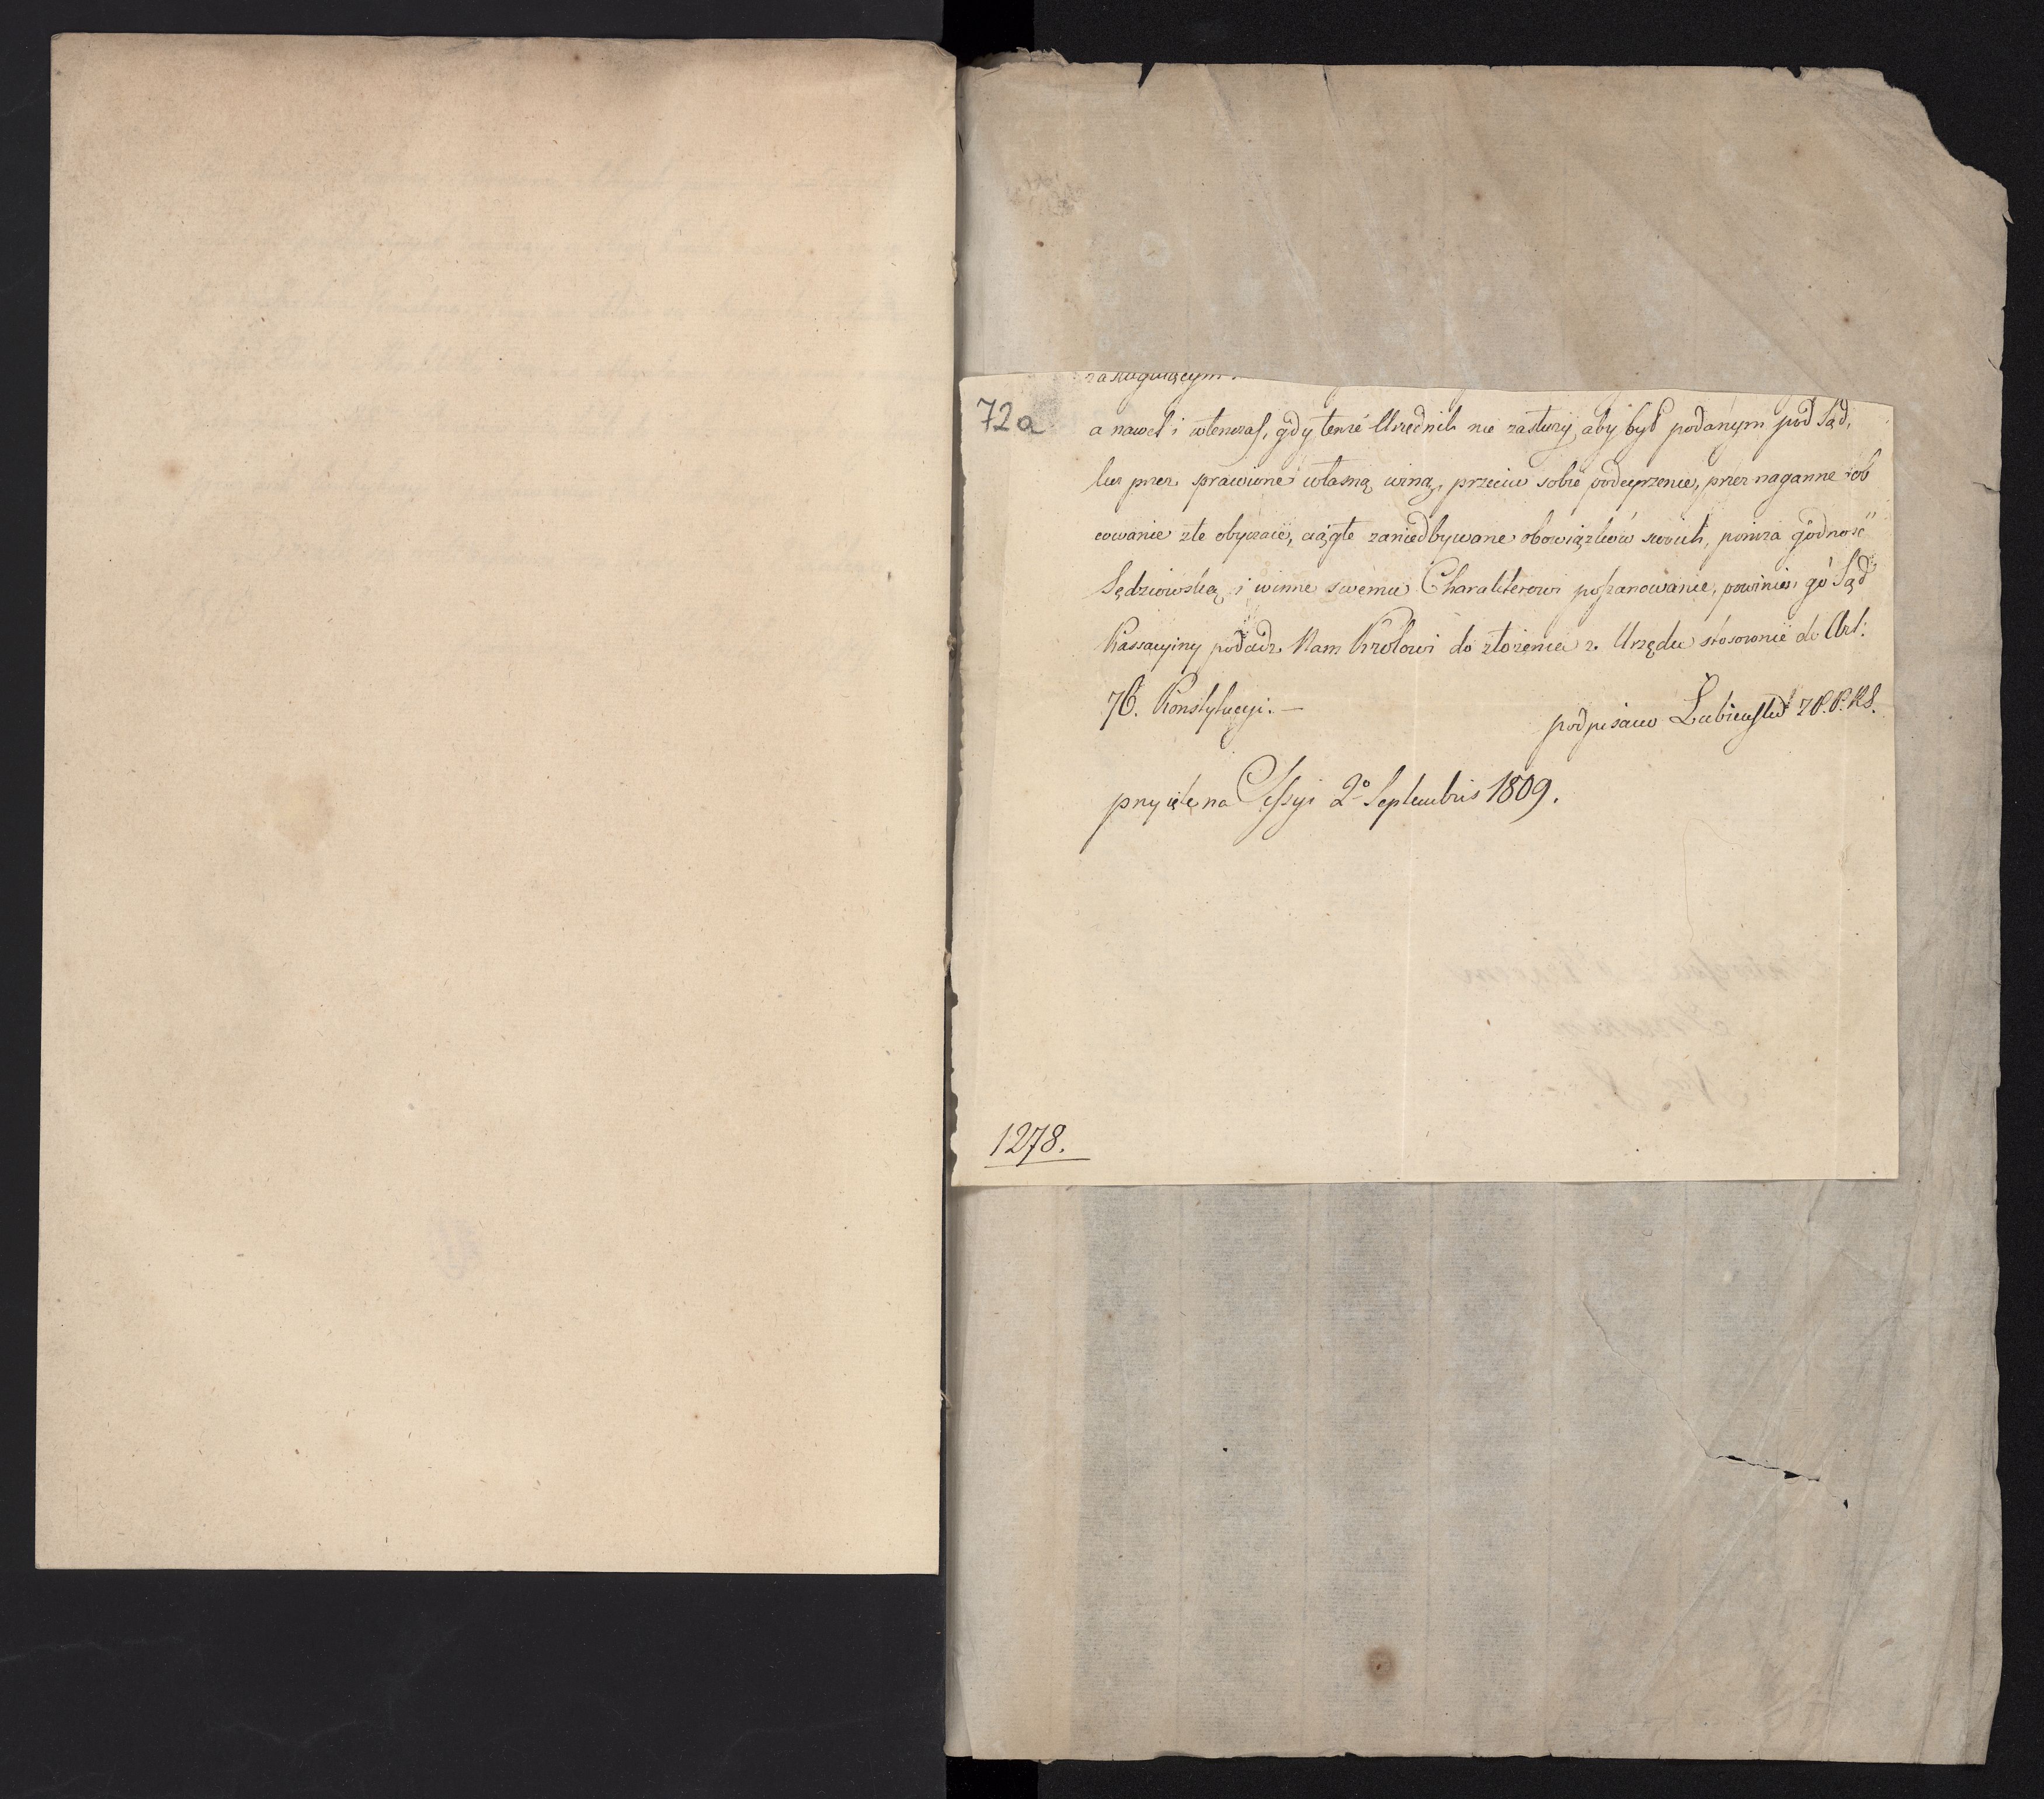 zasługuiącym.
72a
a nawet i wtenczas, gdy tenże Urzędnik nie zasłuży, aby był podanym pod Sąd,
lecz przez sprawione własną winą, przeciw sobie podeyrzenie, przez naganne ob
cowanie złe obyczaie, ciągłe zaniedbywane obowiązków swoich, poniża godność
Sędziowską i winne swemu Charakterowi poszanowanie, powinien go Sąd
Kassacyiny podadz Nam Królowi do złożenia z Urzędu stosownie do Art:
76. Konstytucyi. —
podpisano Łubieński
przyięte na Sessyi 2º Septembris 1809.
1278.